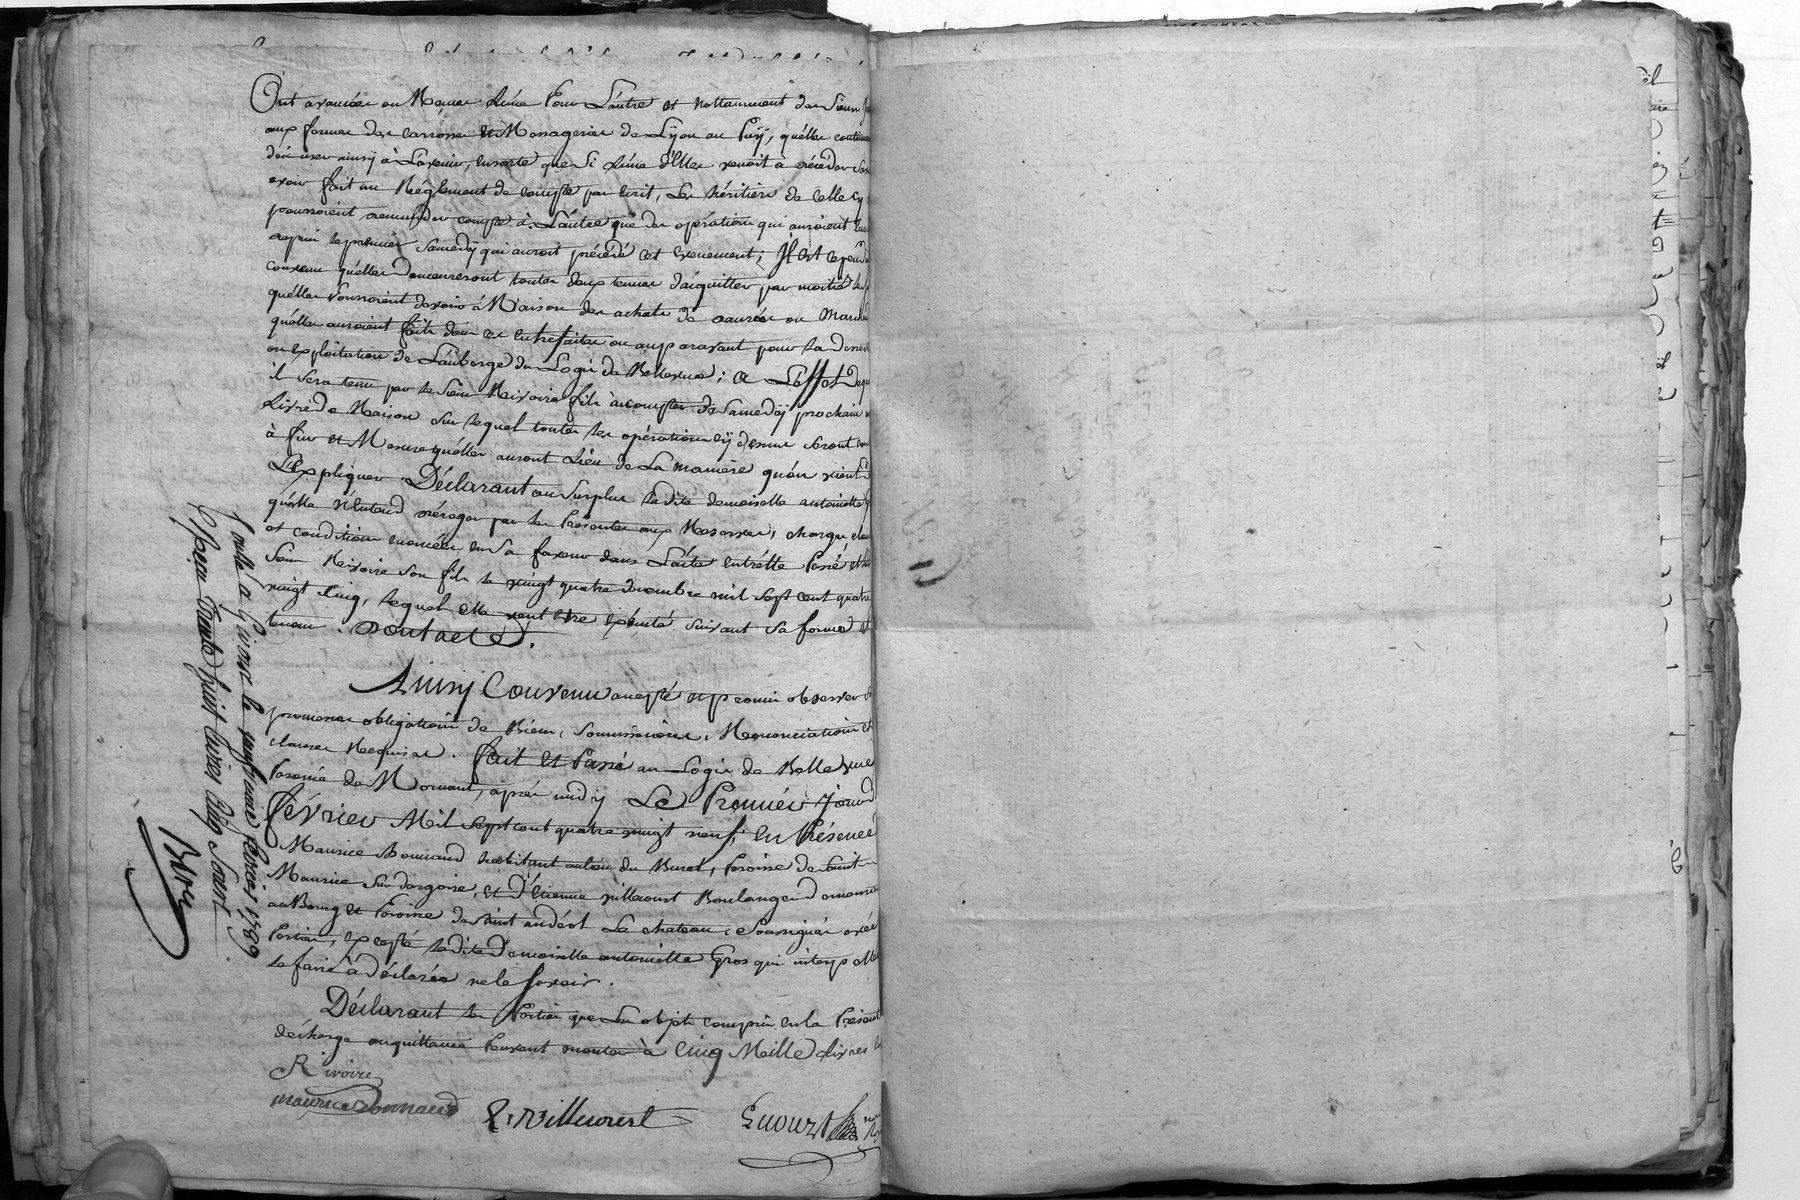 Ont avancées ou Reçues L'une Pour L'autre et nottamment des Sieurs
aux fermes des carrosses et Messageries de Lyon au Puÿ, quelles continue
d'en user ainsÿ à L'avenir, ensorte que Si L'une d'Elles venoit a décéder Sans
avoir fait un Réglement de compte par écrit, Les héritiers de Celle cy
pourroient demander compte à L'autre que des opérations qui auroient
depuis le premier Samedÿ qui auroit précédé cet évenement; Il est cepend
convenu quelles demeureront toutes deux tenues d'aquitter par moitié les
quelles Pourroient devoir à Raison des achats de danrées ou March
quelles auroient faits dans cet entrefaites ou auparavant pour la
ou exploitation de L'auberge du Logis de Bellevue; a L'effet de quoi
il sera tenu par le Sieur Rivoire fils à compter de Samedÿ prochain
Livre de Raison Sur lequel toutes les opérations cÿ dessus seront
à fur et Mesure quelles auront Lieu de La manière quon vient d
L'Expliquer. Déclarant au Surplus ladite demoiselle antoinette
quelle n'Entend déroger par les Présentes aux Réserves, charges
et conditions énoncées en Sa faveur dans L'acte entr'elle Passé et
Sieur Rivoire Son fils le vingt quatre décembre mil Sept cent quatre
vingt cinq, lequel elle veut être exécuté Suivant Sa forme et
teneur. Dont acte.
Ainsÿ Convenu accepté et promis observer
promesses obligations de Biens, Soumissions, Renonciations et
clauses Requises. fait et Passé au Logis de Bellevue
Paroisse de Mornant, après midÿ Le Premier Jour d
février Mil Sept cent quatre vingt neuf, En Présence d
Maurice Bonnaud habitant au lieu du Buret, Paroisse de Saint
Maurice Sur dargoire, et d'Etienne villecourt Boulanger demeurant
au Bourg et Paroisse de Saint andéol Le chateau, Soussignés avec
Parties, excepté ladite Demoiselle antoinette Gros qui interpellée
de faire à déclarée ne le Savoir.
Déclarant les Parties que Les objets compris en la Présente
décharge ou quittance Peuvent monter à Cinq Mille Livres
Rivoire
maurice Bonnaud
E. Villecourt
Controllé a Givors le fevrier 1789.
Reçu trente huit livres dix Sous